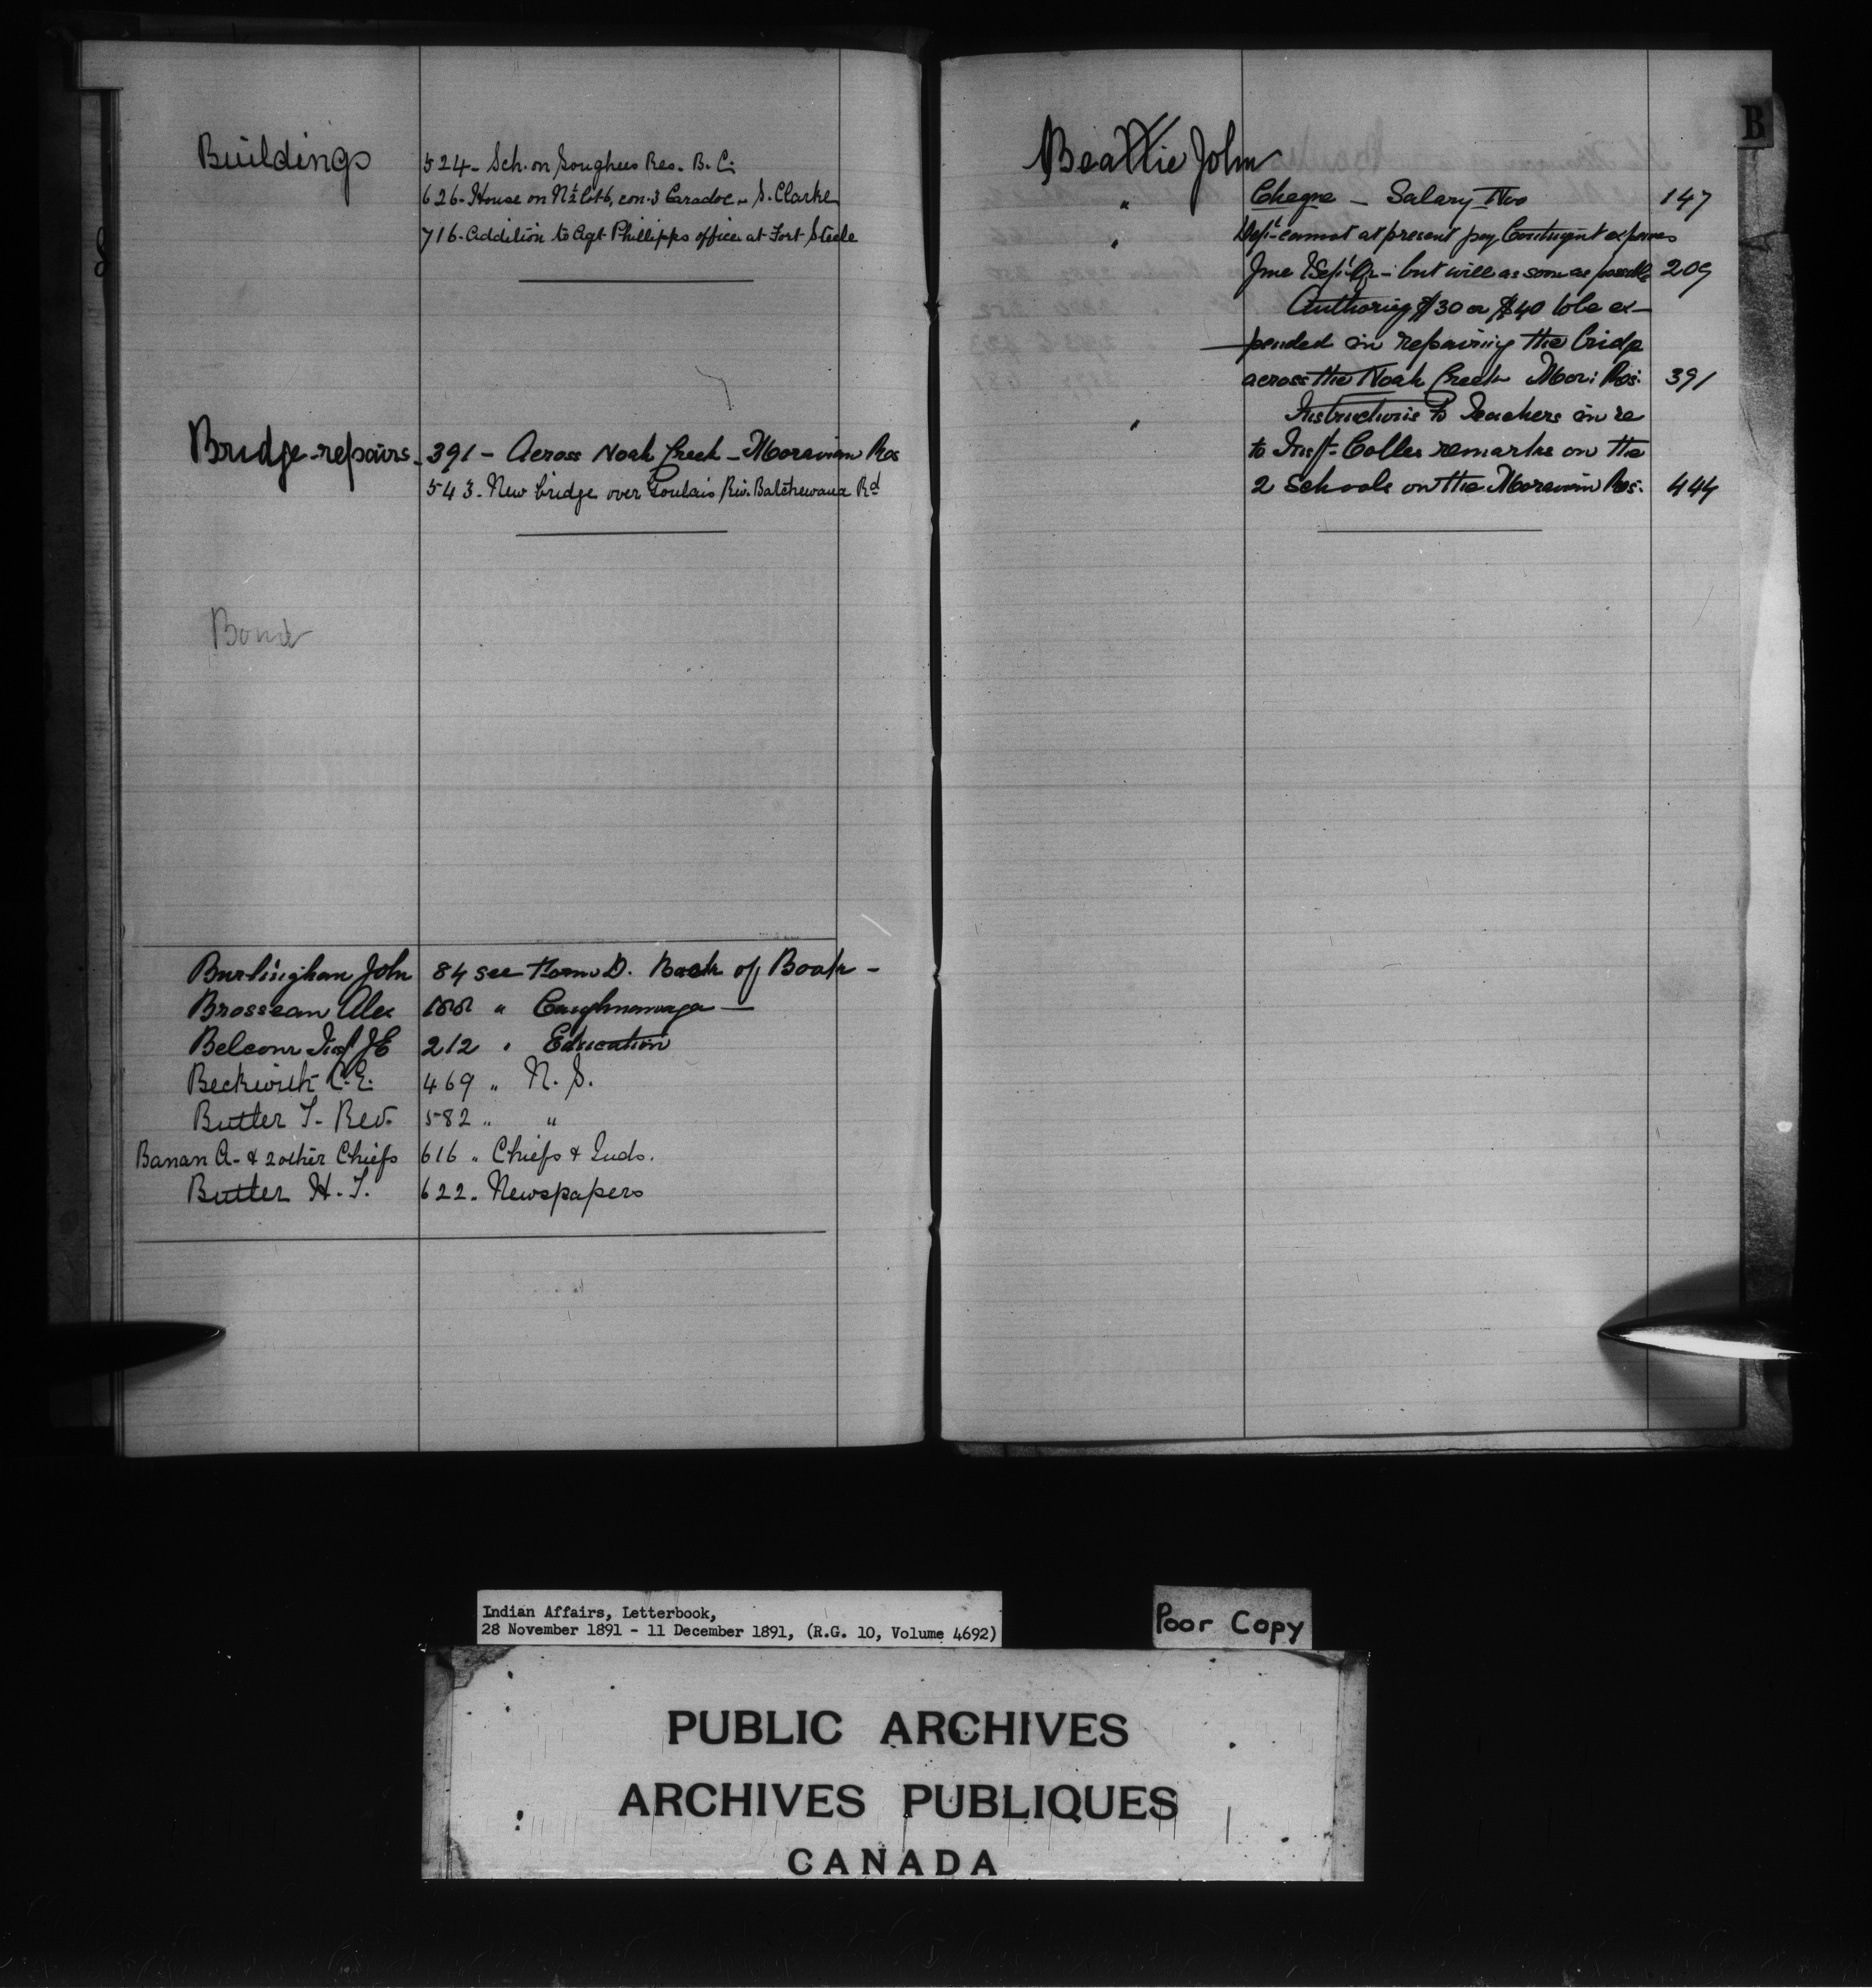 Buildings
524 - Sch. on Songhees Res. B.C.
626 - House on N½ Lot 6, con. 3 Caradoc - S. Clarke
716 - Addition to Agt Phillipps office at Fort Steele
Bridge-repairs - 391 - Across Noah Creek - Moravian Res
543 - New bridge over Goulais Riv. Batchewana Rd
Bond
Burlingham John 84 see D. Back of Book -
Brosseau Alex 188 " Caughnawaga -
Belcour JE 212 " Education
Beckwith C.E. 469 " N.S.
Butler T. Rev. 582 " "
Banan A. & 2 other Chiefs 616 " Chiefs & Inds.
Butler H.T. 622 - Newspapers
B
Beattie John
" Cheque - Salary Nov 147
" Dept cannot at present pay Contingent expenses
June & Sept Qr - but will as soon as possible 209
Authorizing $30 or $40 to be ex-
pended in repairing the bridge
across the Noah Creek Mor: Res: 391
" Instructions to Teachers in re
to Insp. Colles remarks on the
2 Schools on the Moravian Res: 444
Indian Affairs, Letterbook,
28 November 1891 - 11 December 1891, (R.G. 10, Volume 4692)
Poor Copy
PUBLIC ARCHIVES
ARCHIVES PUBLIQUES
CANADA